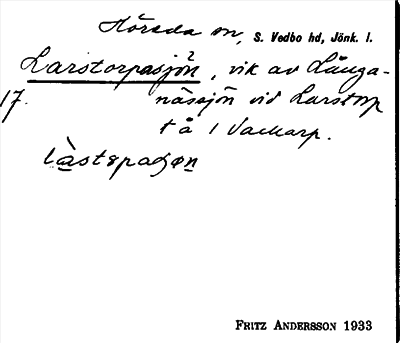 Hörsda sn, S. Vedbo hd, Jönk. l.
Larstorpasjön, vik av Långa-
17. nässjön vid Larstorp
t å 1 Vackarp.
làstɵrpaʃøn
FRITZ ANDERSSON 1933